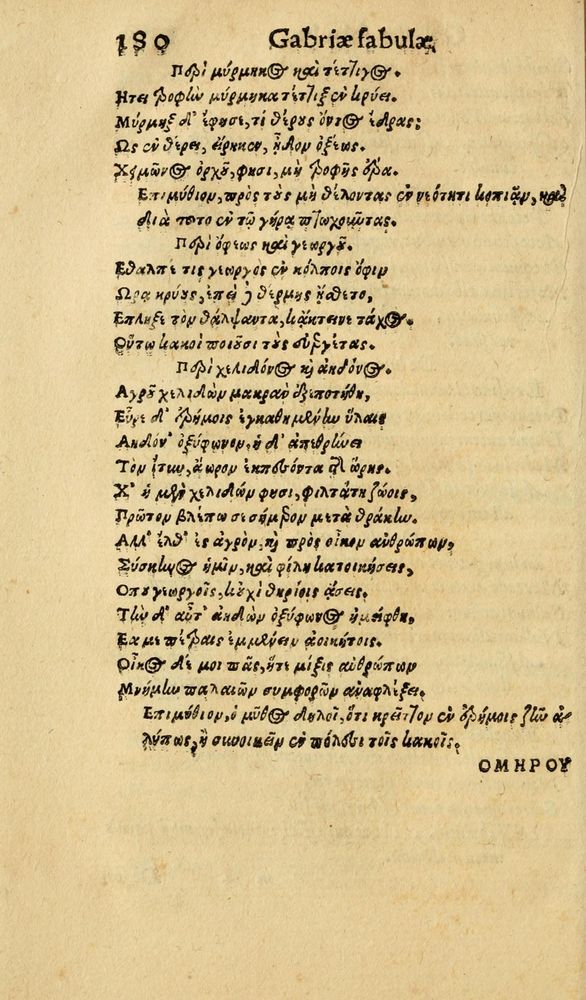 180 Gabriæ fabulæ,
Περὶ μύρμηκος καὶ τέτιγος.
Ητει τροφὼ μύρμηκα τέτιξ ἐν κρύει.
Μύρμηξ δ' ἔφησε, τί θέρους ὄντος ἔδρας;
Ως ἐν θέρει, εἴρηκεν, ᾖδον ὀξέως.
Χειμῶνος ὀρχοῦ, φησι, μὴ τροφῆς ἔρα.
Επιμύθιον, πρὸς τοὺς μὴ θέλοντας ἐν νεότητι κοπιᾷν, καὶ
διὰ τοῦτο ἐν τῷ γήρᾳ πτωχοιῶτας.
Περὶ ὄφεως καὶ γεωργοῦ.
Εθαλπέ τις γεωργὸς ἐν κόλποις ὄφιν
Ωρᾳ κρύους, ἐπεὶ δὲ θέρμης ᾔσθετο,
Επληξε τὸν θάλψαντα, κἄκτεινε τάχος.
Οὕτω κακοὶ ποιοῦσι τοὺς εὐεργέτας.
Περὶ χελιδόνος καὶ ἀηδόνος.
Αγροῦ χελιδὼν μακρὰν ἐξεποτήθη,
Εὗρε δ' ἐρήμοις ἐγκαθημένlω ὕλαις
Αηδόν' ὀξύφωνον, ἡ δ' ἀπεθρlώει
Τὸν ἴτυν, ἄωρον ἐκπεσόντα τῆς ὥρης.
Χ' ἡ μὲν χελιδών φησι, φιλτάτη ζώοις,
Πρῶτον βλέπω σε σήμερον μετὰ θράκlω.
Αλλ' ἔλθ' ἐς ἀγρὸν, καὶ πρὸς οἶκον ἀνθρώπων,
Σύσκlωος ἡμῖν, καὶ φίλη κατοικήσεις,
Οπου γεωργοῖς, κοὐχὶ θηρίοις ᾄσεις.
Τlω δ' αὖτ' ἀηδὼν ὀξύφωνος ἠμείφθη,
Εα με πέτραις ἐμμένειν ἀοικήτοις.
Οἶκος δέ μοι πᾶς, ἥτε μίξις ἀνθρώπων
Μνήμlω παλαιῶν συμφορῶν ἀναφλέξει.
Επιμύθιον, ὁ μῦθος δηλοῖ, ὅτι κρεῖττον ἐν ἐρήμοις ζῆν ἀ-
λύπως, ἢ συνοικεῖν ἐν πόλεσι τοῖς κακοῖς.
ΟΜΗΡΟΥ